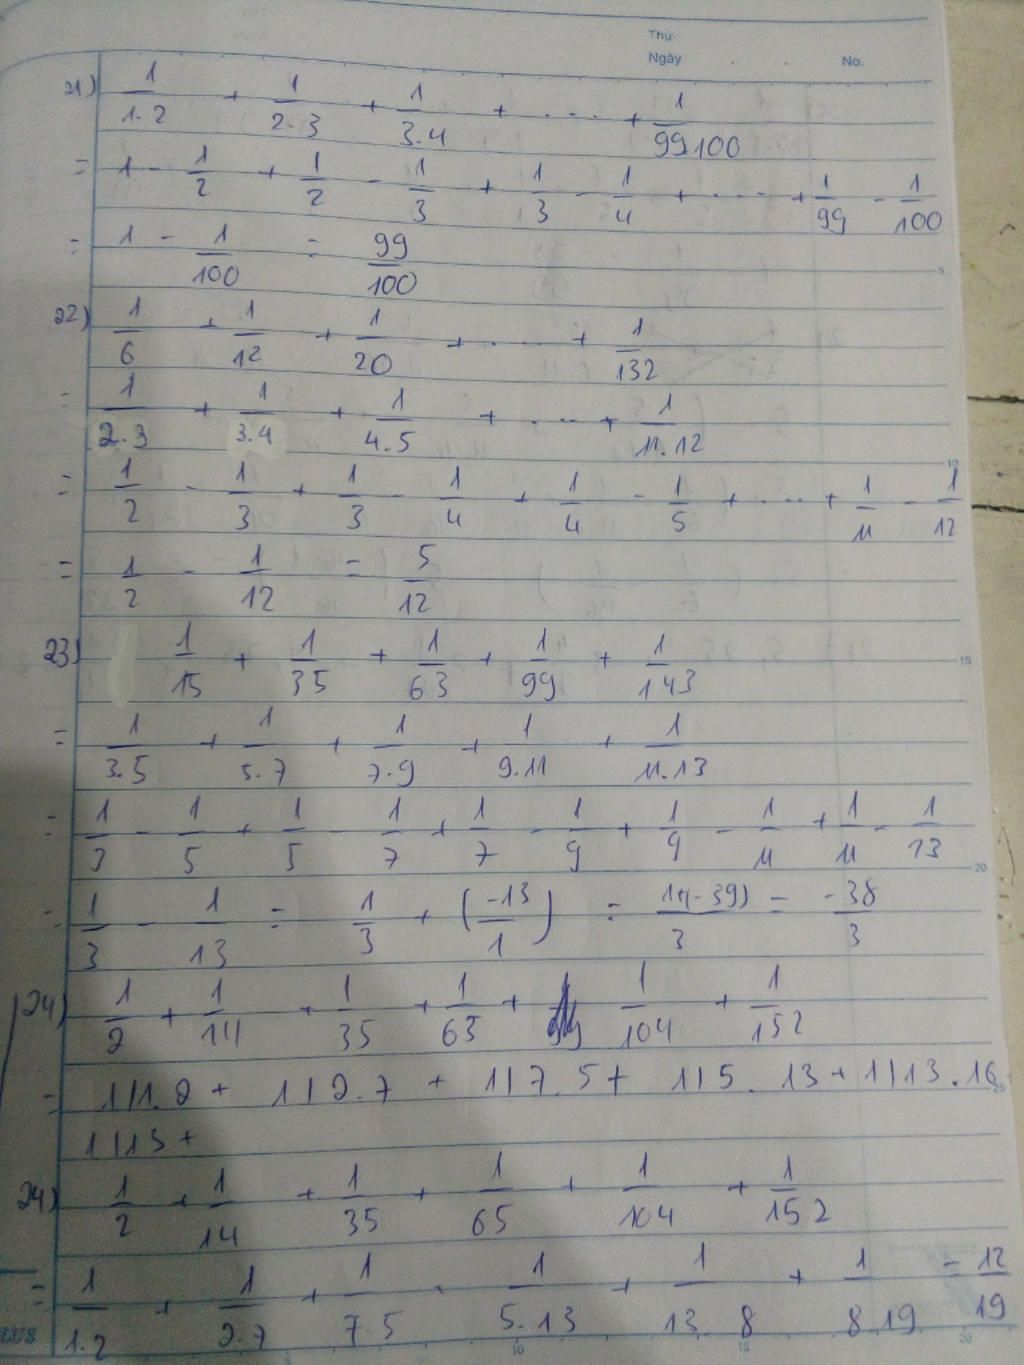 Thứ
Ngày No.
21) 1/1.2 + 1/2.3 + 1/3.4 + .... + 1/99.100
= 1 - 1/2 + 1/2 - 1/3 + 1/3 - 1/4 + .... + 1/99 - 1/100
= 1 - 1/100 = 99/100
22) 1/6 + 1/12 + 1/20 + .... + 1/132
= 1/2.3 + 1/3.4 + 1/4.5 + .... + 1/11.12
= 1/2 - 1/3 + 1/3 - 1/4 + 1/4 - 1/5 + .... + 1/11 - 1/12
= 1/2 - 1/12 = 5/12
23) 1/15 + 1/35 + 1/63 + 1/99 + 1/143
= 1/3.5 + 1/5.7 + 1/7.9 + 1/9.11 + 1/11.13
= 1/3 - 1/5 + 1/5 - 1/7 + 1/7 - 1/9 + 1/9 - 1/11 + 1/11 - 1/13
= 1/3 - 1/13 = 1/3 + (-13/1) = 1+(-39)/3 = -38/3
24) 1/2 + 1/14 + 1/35 + 1/63 + 1/104 + 1/152
= 1/1.2 + 1/2.7 + 1/7.5 + 1/5.13 + 1/13.16
1/13 +
24) 1/2 + 1/14 + 1/35 + 1/65 + 1/104 + 1/152
= 1/1.2 + 1/2.7 + 1/7.5 + 1/5.13 + 1/13.8 + 1/8.19 = 12/19